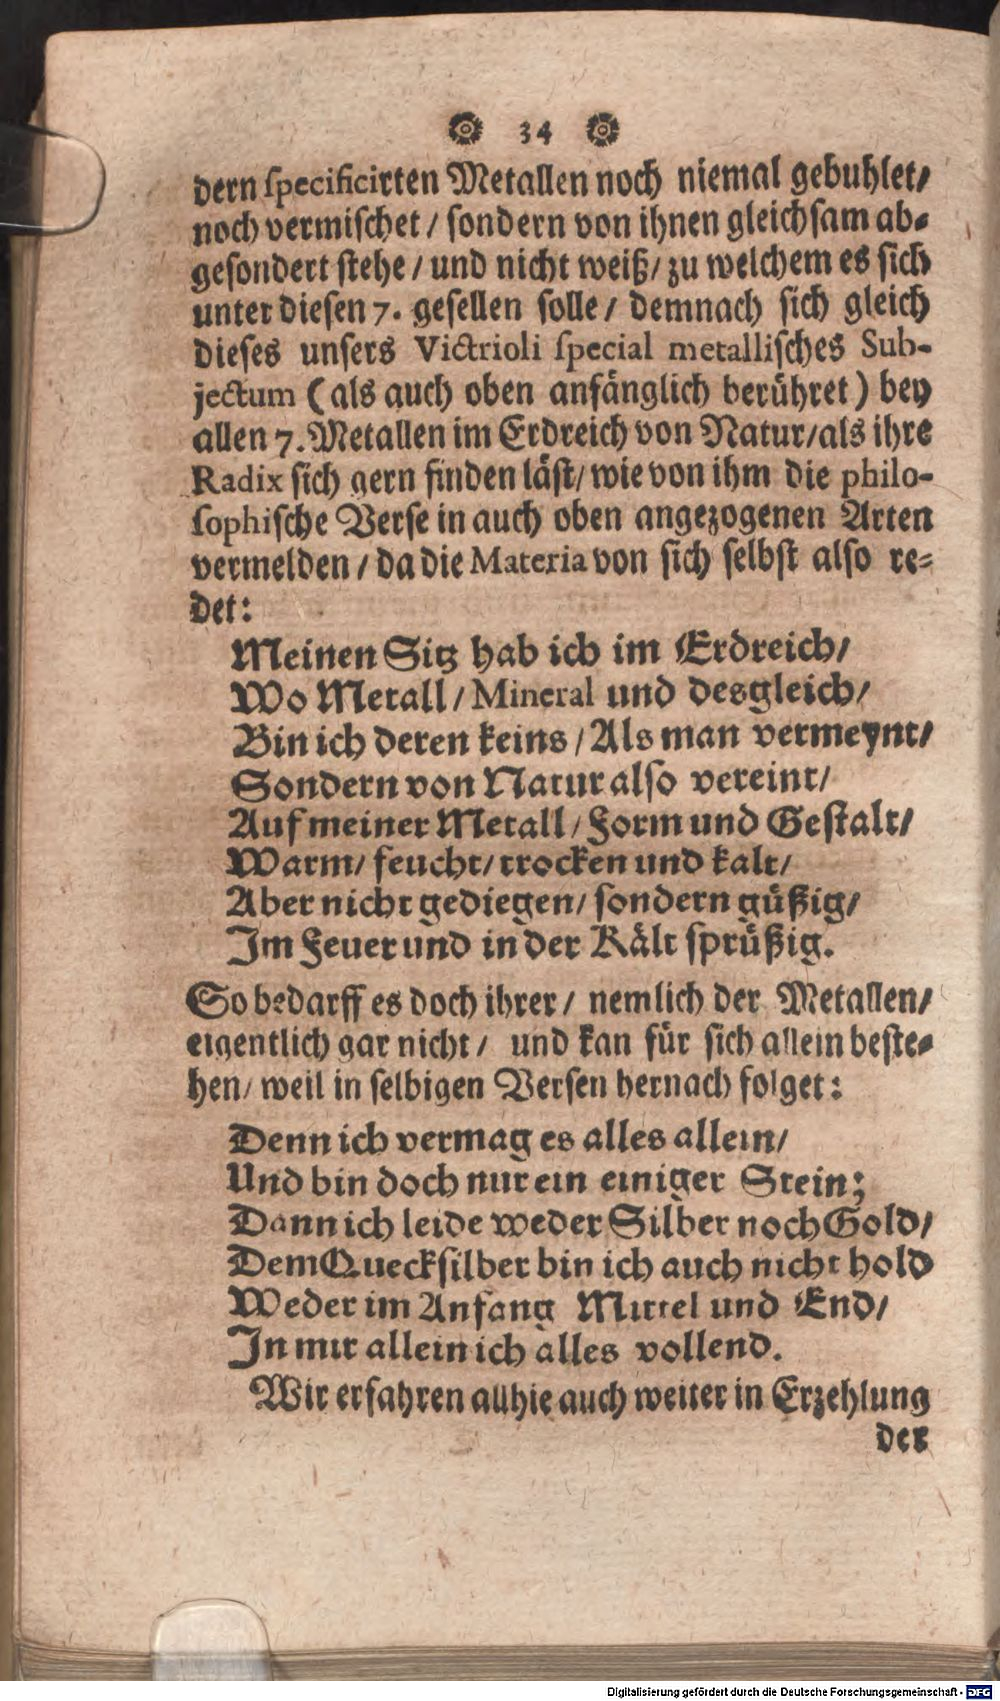 34
dern specificirten Metallen noch niemal gebuhlet/
noch vermischet / sondern von ihnen gleichsam ab-
gesondert stehe / und nicht weiß / zu welchem es sich
unter diesen 7. gesellen solle / demnach sich gleich
dieses unsers Victrioli special metallisches Sub-
jectum (als auch oben anfänglich berühret) bey
allen 7. Metallen im Erdreich von Natur/als ihre
Radix sich gern finden läst/ wie von ihm die philo-
sophische Verse in auch oben angezogenen Arten
vermelden / da die Materia von sich selbst also re-
det:
Meinen Sitz hab ich im Erdreich/
Wo Metall / Mineral und desgleich/
Bin ich deren keins / Als man vermeynt/
Sondern von Natur also vereint/
Auf meiner Metall / Form und Gestalt/
Warm/ feucht/ trocken und kalt/
Aber nicht gediegen/ sondern güßig/
Im Feuer und in der Kält sprüßig.
So bedarff es doch ihrer / nemlich der Metallen/
eigentlich gar nicht / und kan für sich allein beste-
hen/ weil in selbigen Versen hernach folget:
Denn ich vermag es alles allein/
Und bin doch nur ein einiger Stein;
Dann ich leide weder Silber noch Gold/
Dem Quecksilber bin ich auch nicht hold
Weder im Anfang Mittel und End/
In mir allein ich alles vollend.
Wir erfahren allhie auch weiter in Erzehlung
der
Digitalisierung gefördert durch die Deutsche Forschungsgemeinschaft - DFG